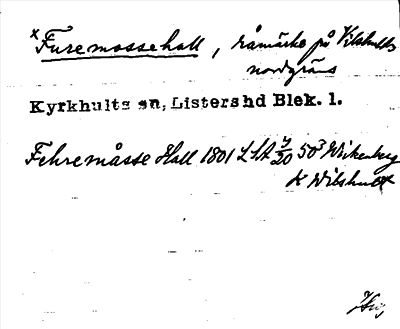 x Furemossehall, råmärke på Vilshults
nordgräns
Kyrkhults sn, Listershd Blek. l.
Fehremåsse Hall 1801 LSA J/20 50³ Wirkenberg
k Wilshult